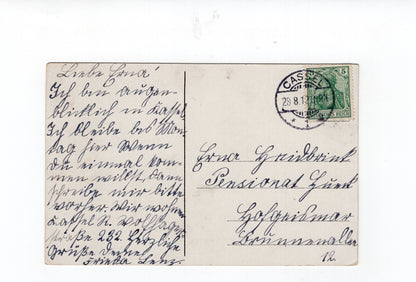 Liebe Erna!
Ich bin augen-
blicklich in Kassel
Ich bleibe bis Mon-
dag hier Wenn
du einmal kom-
men willst, dann
schreibe mir bitte
vorher. Wir wohnen
Kassel R.
straße 232. Herzliche
Grüße Deine
Frieda Lenz.
CASSEL
5
Erna Heidbrink
Pensionat
Hofgeismar
Brunnenallee
12.